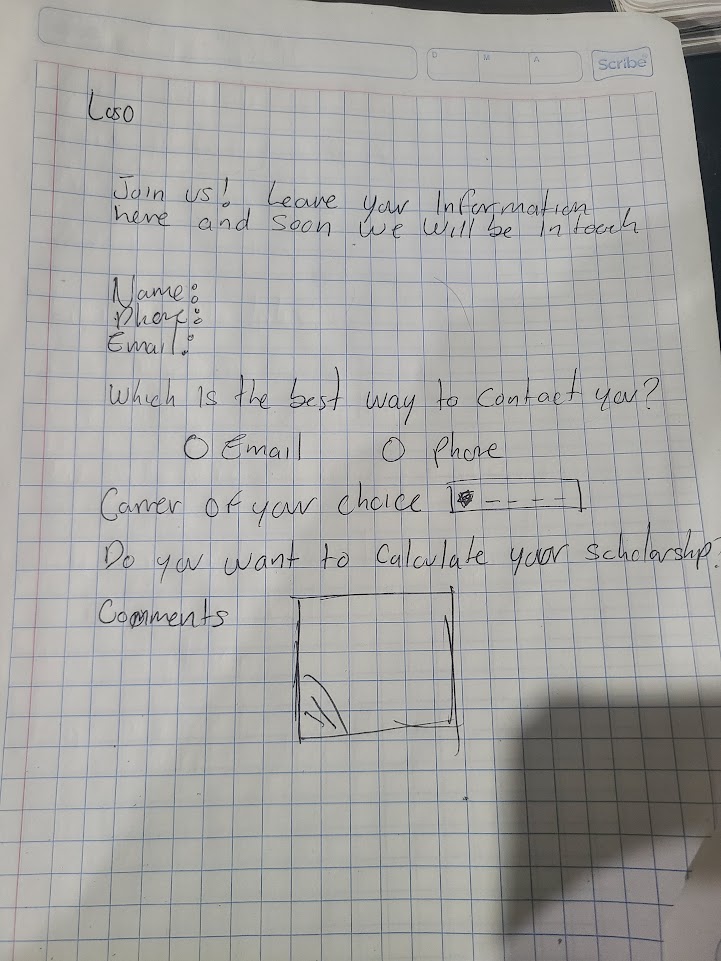 D M A Scribe
Loso
Join us! Leave your Information
here and Soon we will be in touch
Name:
Phone:
Email:
Which is the best way to contact you?
Email Phone
Carrer of your choice
Do you want to calculate your scholarshp?
Comments